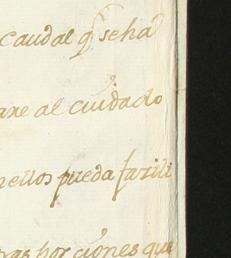 caudal q.e se ha
axe al cuidado
nellos pueda facili
porciones que